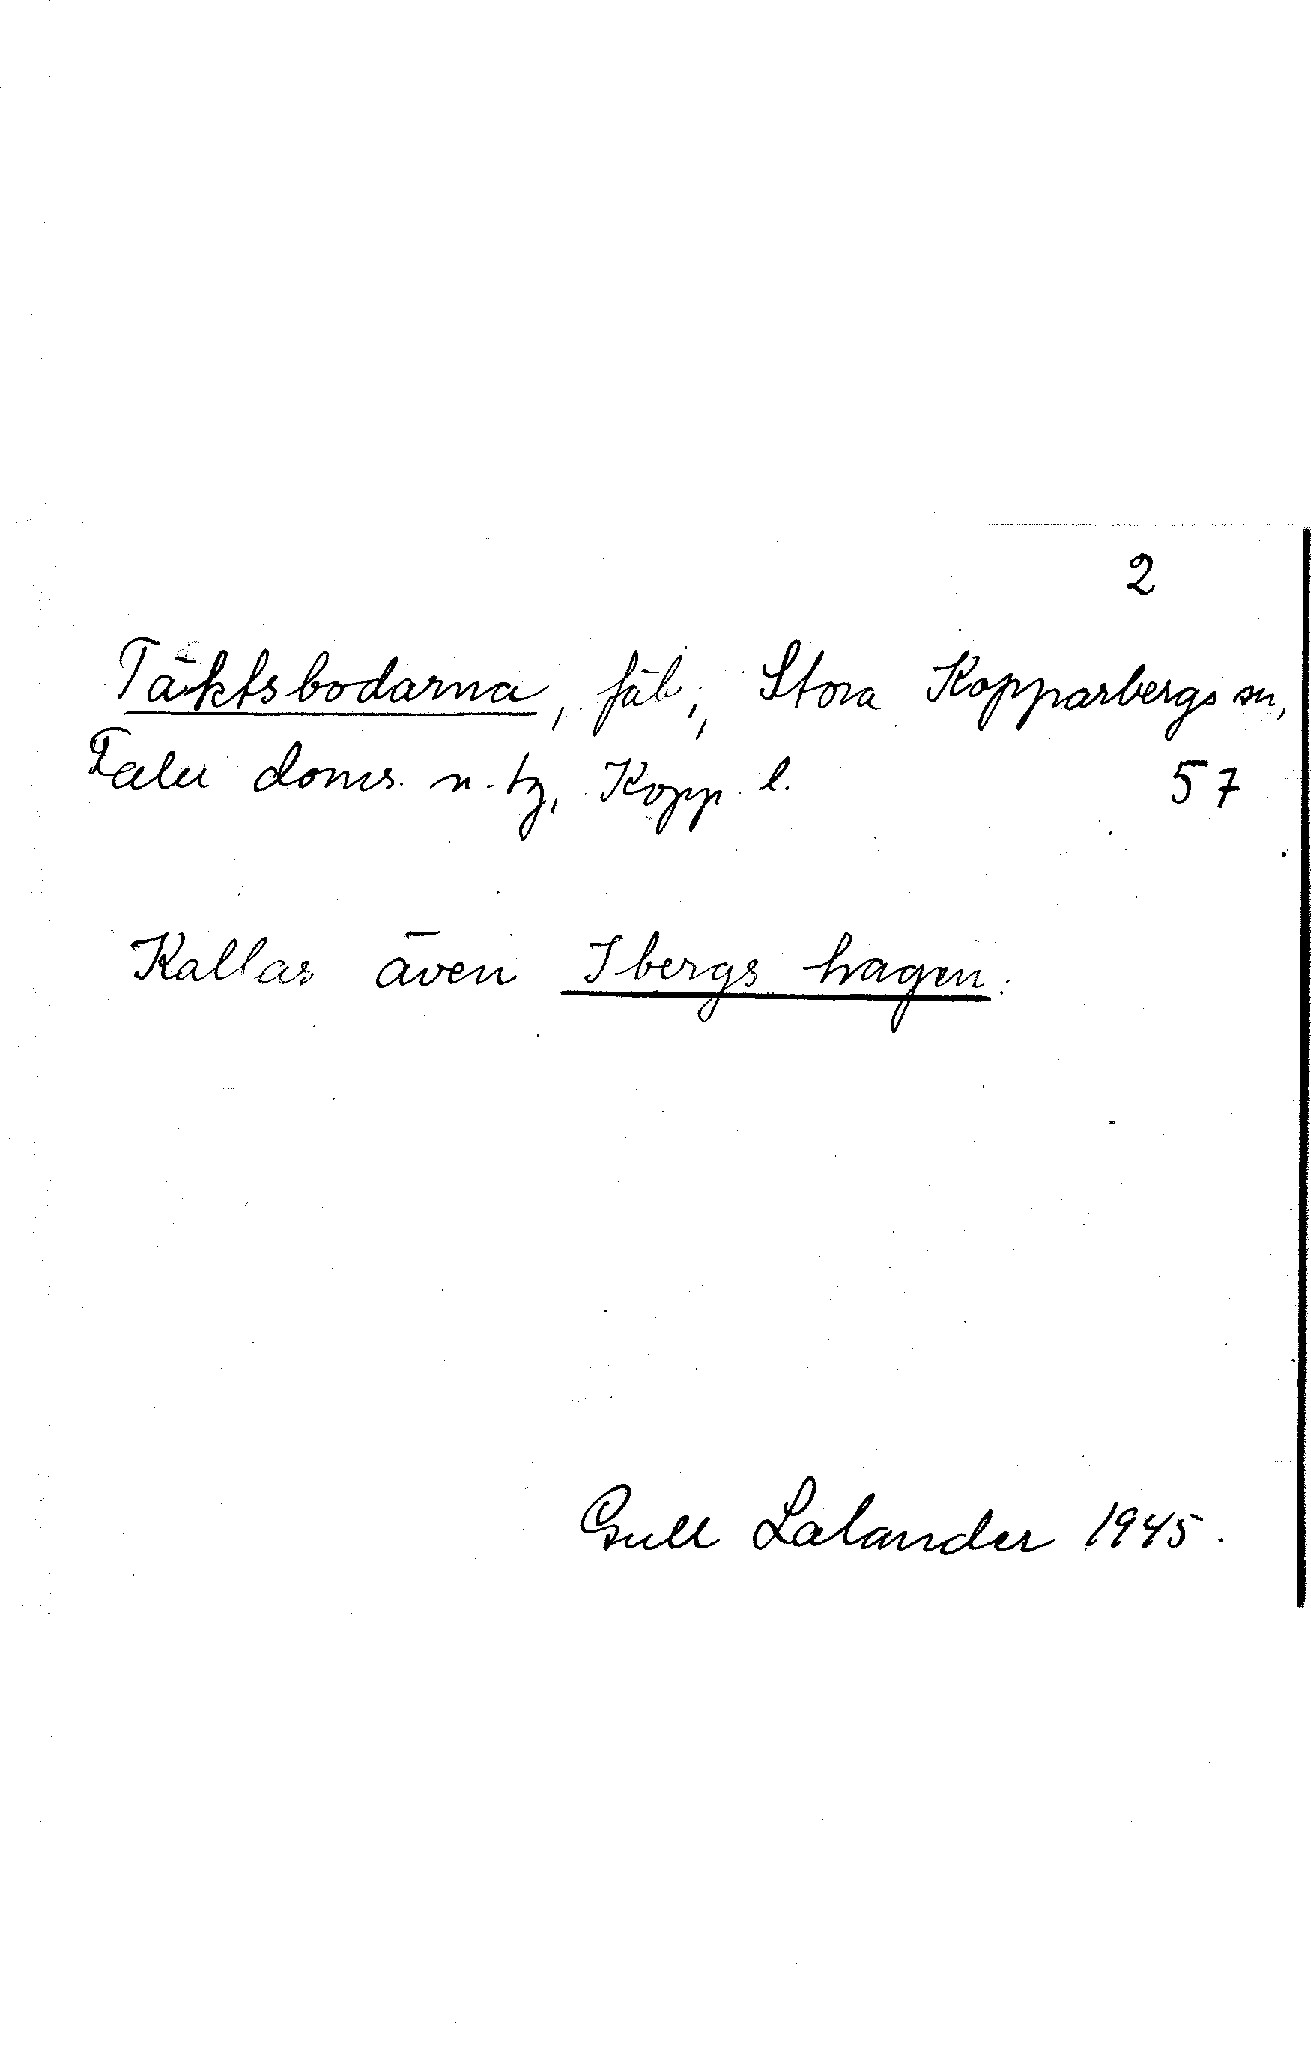 2
Täktsbodarna, fäb., Stora Kopparbergs sn,
Falu doms. n. tg, Kopp. l.
57
Kallas även Ibergs hagen.
Gull Lalander 1945.